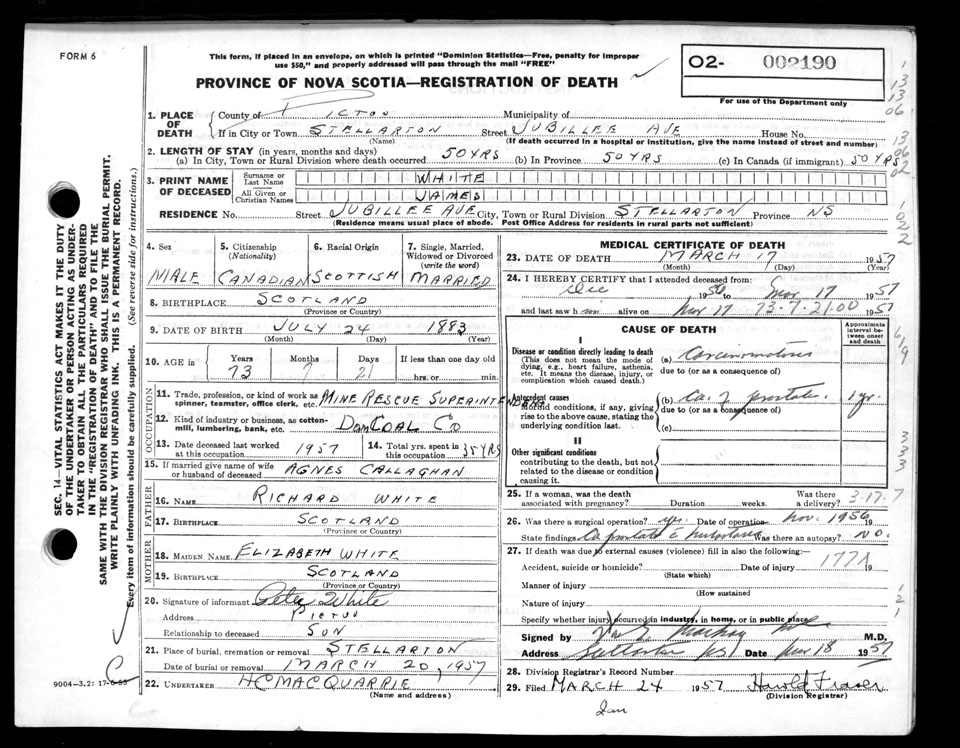 FORM 6
This form, if placed in an envelope, on which is printed "Dominion Statistics—Free, penalty for improper
use $50," and properly addressed will pass through the mail "FREE"
PROVINCE OF NOVA SCOTIA—REGISTRATION OF DEATH
O2- 002190
For use of the Department only
1. PLACE OF DEATH
County of PICTOU Municipality of
If in City or Town STELLARTON Street JUBILLEE AVE House No.
(Name) (If death occurred in a hospital or institution, give the name instead of street and number)
2. LENGTH OF STAY (in years, months and days)
(a) In City, Town or Rural Division where death occurred 50 YRS (b) In Province 50 YRS (c) In Canada (if immigrant) 50 YRS
3. PRINT NAME OF DECEASED
Surname or Last Name WHITE
All Given or Christian Names JAMES
RESIDENCE No. Street JUBILLEE AVE City, Town or Rural Division STELLARTON Province NS
(Residence means usual place of abode. Post Office Address for residents in rural parts not sufficient)
4. Sex 5. Citizenship (Nationality) 6. Racial Origin 7. Single, Married, Widowed or Divorced (write the word)
MALE CANADIAN SCOTTISH MARRIED
8. BIRTHPLACE SCOTLAND
(Province or Country)
9. DATE OF BIRTH JULY 24 1883
(Month) (Day) (Year)
10. AGE in Years Months Days If less than one day
73 7 21 hrs. or min.
OCCUPATION
11. Trade, profession, or kind of work as spinner, teamster, office clerk, etc. MINE RESCUE SUPERINTENDENT
12. Kind of industry or business, as cotton-mill, lumbering, bank, etc. DOM COAL CO
13. Date deceased last worked at this occupation 1957 14. Total yrs. spent in this occupation 35 YRS
15. If married give name of wife or husband of deceased AGNES CALLAGHAN
FATHER
16. NAME RICHARD WHITE
17. BIRTHPLACE SCOTLAND
(Province or Country)
MOTHER
18. MAIDEN NAME ELIZABETH WHITE
19. BIRTHPLACE SCOTLAND
(Province or Country)
20. Signature of informant Peter White
Address PICTOU
Relationship to deceased SON
21. Place of burial, cremation or removal STELLARTON
Date of burial or removal MARCH 20, 1957
22. UNDERTAKER HC MACQUARRIE
(Name and address)
MEDICAL CERTIFICATE OF DEATH
23. DATE OF DEATH MARCH 17 1957
(Month) (Day) (Year)
24. I HEREBY CERTIFY that I attended deceased from:
Dec 1956 to Mar 17 1957
and last saw h im alive on Mar 17 73-7-21.00 1957
CAUSE OF DEATH
Approximate interval between onset and death
I
Disease or condition directly leading to death (a) Carcinomatosis
(This does not mean the mode of dying, e.g., heart failure, asthenia, etc. It means the disease, injury, or complication which caused death.)
due to (or as a consequence of)
Antecedent causes (b) Ca. of prostate 1 yr.
Morbid conditions, if any, giving rise to the above cause, stating the underlying condition last.
due to (or as a consequence of)
(c)
II
Other significant conditions
contributing to the death, but not related to the disease or condition causing it.
25. If a woman, was the death associated with pregnancy? Duration weeks. Was there a delivery? 3-17-7
26. Was there a surgical operation? yes. Date of operation Nov. 1956 19
State findings Ca prostate Was there an autopsy? NO.
27. If death was due to external causes (violence) fill in also the following:—
Accident, suicide or homicide? Date of injury 177X 19
(State which)
Manner of injury
(How sustained
Nature of injury
Specify whether injury occurred in industry, in home, or in public place
Signed by M.D.
Address Stellarton NS Date Mar 18 1957
28. Division Registrar's Record Number
29. Filed MARCH 24 1957 Harold Fraser
(Division Registrar)
SEC. 14—VITAL STATISTICS ACT MAKES IT THE DUTY
OF THE UNDERTAKER OR PERSON ACTING AS UNDER-
TAKER TO OBTAIN ALL THE PARTICULARS REQUIRED
IN THE "REGISTRATION OF DEATH" AND TO FILE THE
SAME WITH THE DIVISION REGISTRAR WHO SHALL ISSUE THE BURIAL PERMIT.
WRITE PLAINLY WITH UNFADING INK. THIS IS A PERMANENT RECORD.
Every item of information should be carefully supplied. (See reverse side for instructions.)